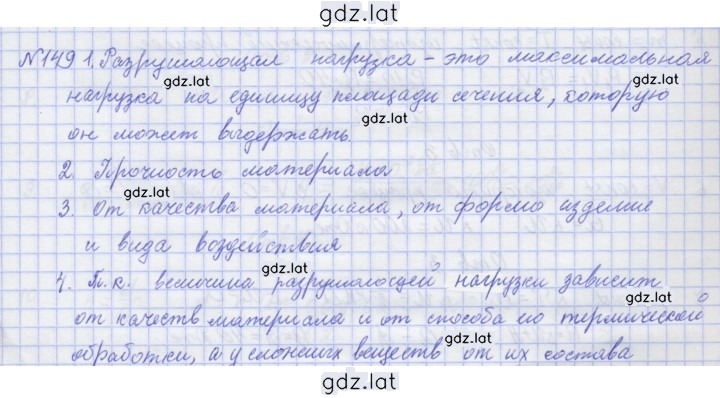 gdz.lat
№149 1. Разрушающая нагрузка - это максимальная
gdz.lat
нагрузка на единицу площади сечения, которую
gdz.lat
он может выдержать.
gdz.lat
2. Прочность материала
gdz.lat
3. От качества материала, от формо изделие
и вида воздействия
gdz.lat
4. Т.к. величина разрушающей нагрузки зависит
gdz.lat
от качеств материала и от способа по термической
gdz.lat
обработки, а у сложных веществ от их состава
gdz.lat
gdz.lat